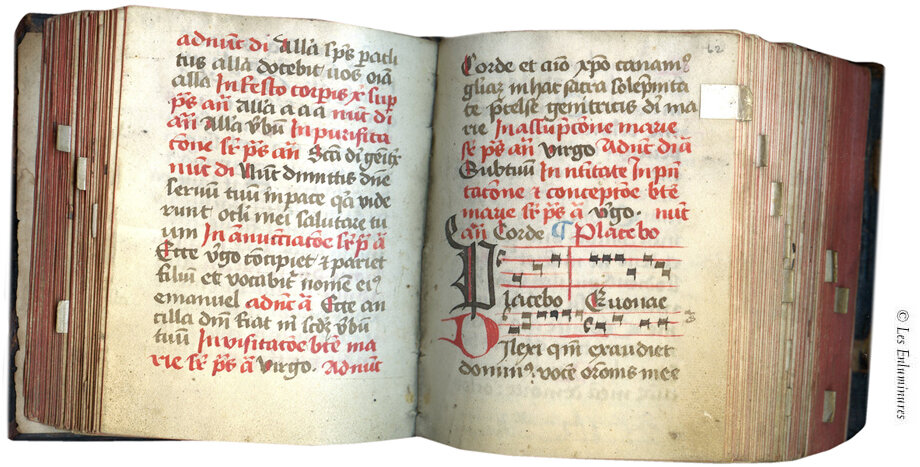 adnūt di Alla sps paclı
tus alla docebit uos oīa
alla In festo corpis xp̄i sup
ps añ Alla a a a nūt di
añ Alla ỽbū In purifica
cōne sr̄ ps añ Sc̄a di genitx
nūt di Nūc dimittis dn̄e
seruum tuum in pace qa vide
runt oculi mei salutare tu
um In añūctiatōe sr̄ ps ā
Ecce ỽgo concipiet ⁊ pariet
filium et vocabit᷑ nomen eiꝰ
emanuel adnūt ā Ecce an
cilla dn̄i fiat m̄ scdȝ ỽbū
tuum In visitatōe btē ma
rie sr̄ ps ā virgo. Adnūt
62
Corde et aīo xp̄o canamꝰ
gliaȝ in hac sacra solēpnita
te p̄celse genitricis di ma
rie In assūptōne marie
sr̄ ps añ virgo Adnūt di ā
Sub tuum In nt̄itate In pn̄
tacōne ⁊ conceptōe btē
marie sr̄ ps ā ỽgo. nūt
añ Corde ¶ Placebo
Placebo Euouae
Dilexi qm̄ exaudiet
dominꝰ vocē or̄onis mee
© Les Enluminures